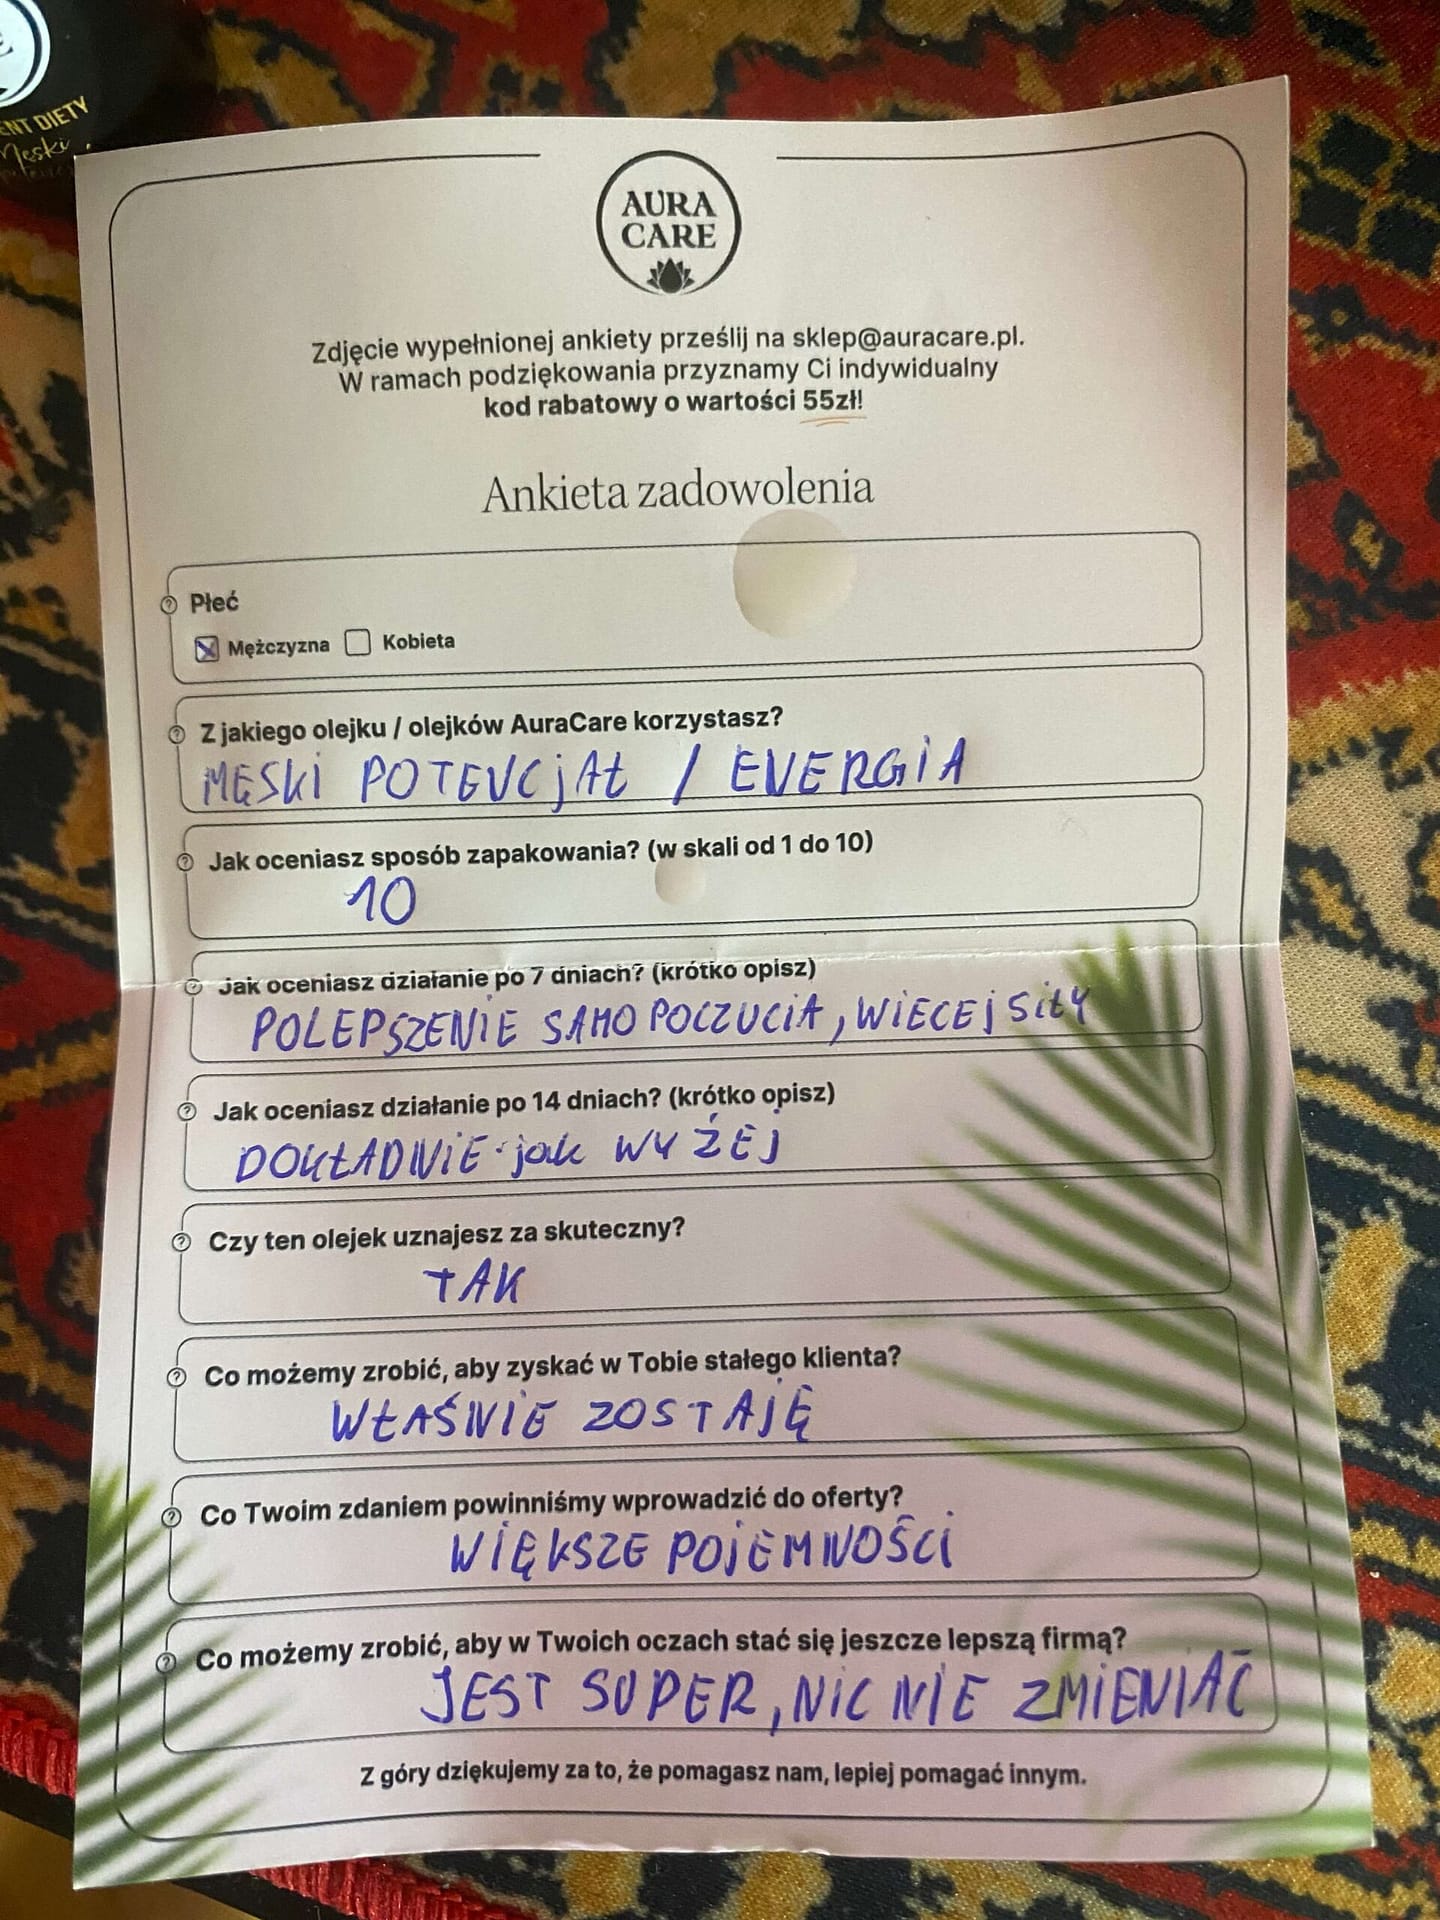 ENT DIETY
Męski
AURA
CARE
Zdjęcie wypełnionej ankiety prześlij na sklep@auracare.pl.
W ramach podziękowania przyznamy Ci indywidualny
kod rabatowy o wartości 55zł!
Ankieta zadowolenia
Płeć
Mężczyzna Kobieta
Z jakiego olejku / olejków AuraCare korzystasz?
MĘSKI POTENCJAŁ / ENERGIA
Jak oceniasz sposób zapakowania? (w skali od 1 do 10)
10
Jak oceniasz działanie po 7 dniach? (krótko opisz)
POLEPSZENIE SAMOPOCZUCIA, WIECEJ SIŁY
Jak oceniasz działanie po 14 dniach? (krótko opisz)
DOKŁADNIE jak WYŻEJ
Czy ten olejek uznajesz za skuteczny?
TAK
Co możemy zrobić, aby zyskać w Tobie stałego klienta?
WŁAŚNIE ZOSTAJĘ
Co Twoim zdaniem powinniśmy wprowadzić do oferty?
WIĘKSZE POJEMNOŚCI
Co możemy zrobić, aby w Twoich oczach stać się jeszcze lepszą firmą?
JEST SUPER, NIC NIE ZMIENIAĆ
Z góry dziękujemy za to, że pomagasz nam, lepiej pomagać innym.